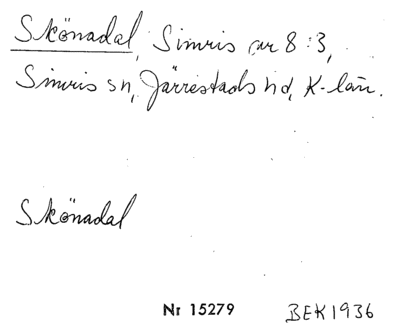 Skönadal, Simris nr 8:3,
Simris sn, Järrestads hd, K-län.
Skönadal
Nr 15279 BEK 1936